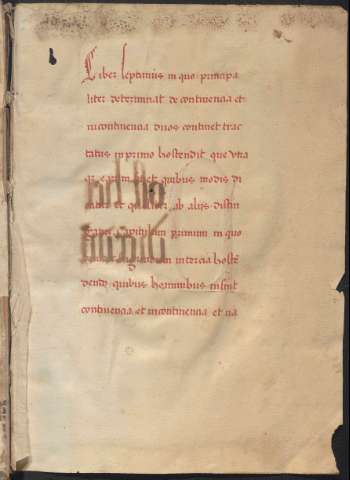 Liber septimus in quo principa
liter determinat de continencia et
incontinencia duos continet trac
tatus in primo hostendit que
et quibus modis di
ab alijs distin
Capitulum primum in quo
in tercia hosten
dendo quibus hominibus insint
continencia et incontinencia et ua